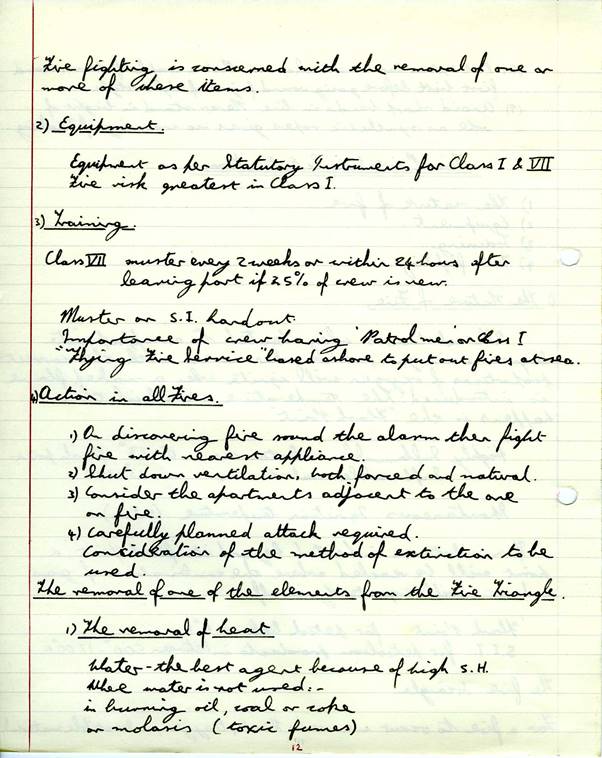 Fire fighting is concerned with the removal of one or
more of these items.
2) Equipment.
Equipment as per Statutory Instruments for Class I & VII
Fire risk greatest in Class I.
3) Training.
Class VII muster every 2 weeks or within 24 hours after
leaving port if 25% of crew is new.
Muster on S.I. handout.
Importance of crew having 'Patrol men' on Class I
"Flying Fire Service" based ashore to put out fires at sea.
4) Action in all Fires.
1) On discovering fire sound the alarm then fight
fire with nearest appliance.
2) Shut down ventilation, both forced and natural.
3) Consider the apartments adjacent to the one
on fire.
4) Carefully planned attack required.
Consideration of the method of extinction to be
used.
The removal of one of the elements from the Fire Triangle.
1) The removal of heat
Water - the best agent because of high S.H.
water is not used:-
in burning oil, coal or coke
or molasis (toxic fumes)
12